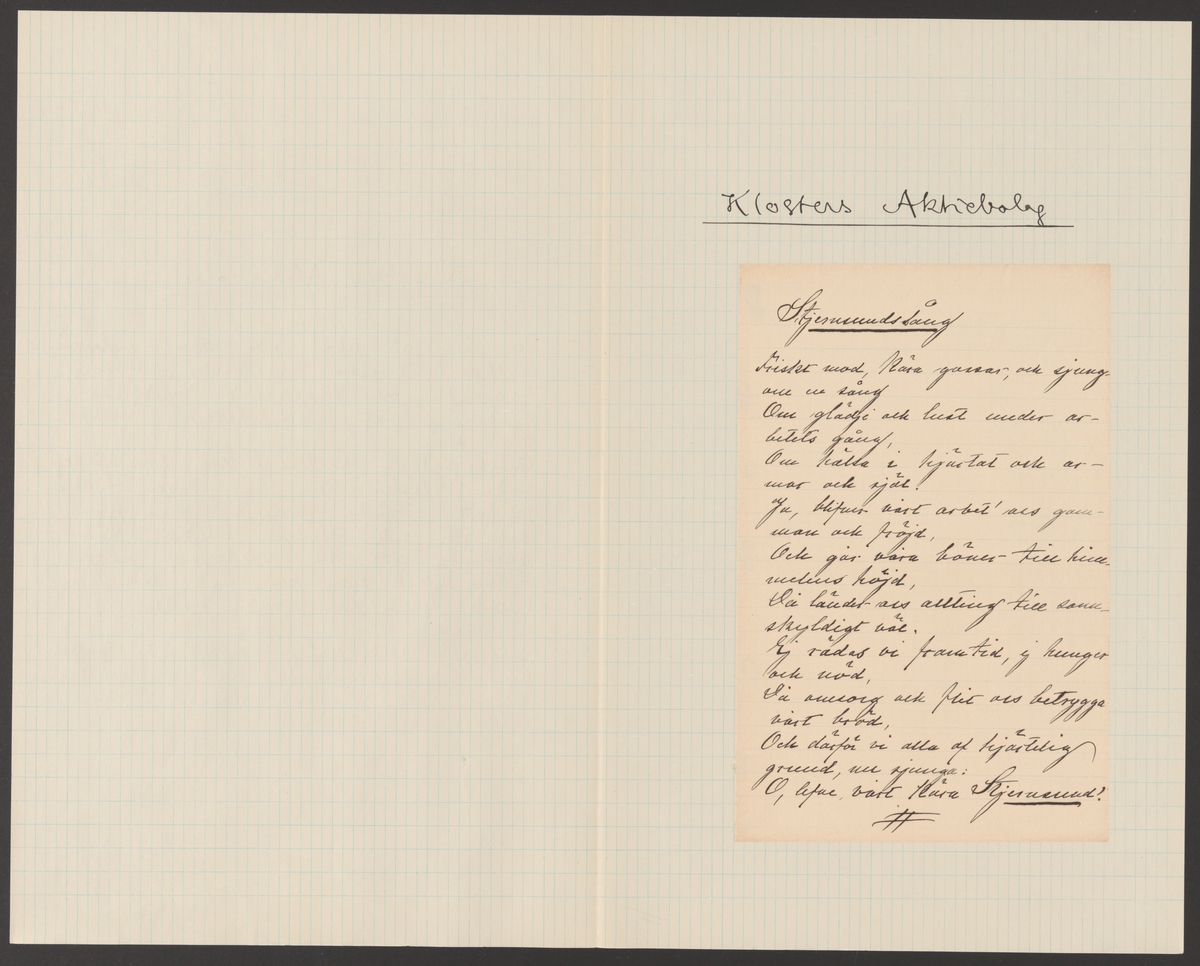 Klosters Aktiebolag
Stjernsunds Sång
Friskt mod, kära gossar, och sjung-
om en sång
Om glädje och lust under ar-
betets gång,
Om hälsa i hjärtat och ar-
mar och själ.
Ja, blifver vårt arbet' oss gam-
man och fröjd,
Och går våra böner till him-
melens höjd,
Så länder oss allting till sann-
skyldigt väl.
Ej rädas vi framtid, ej hunger
och nöd,
Då omsorg och flit oss betrygga
vårt bröd,
Och därför vi alla af hjärtelig
grund, nu sjunga:
O, lefve vårt kära Stjernsund!